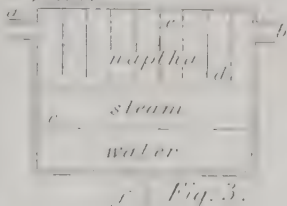 a
c
naptha
d.
steam
c
water
f
Fig. 3.